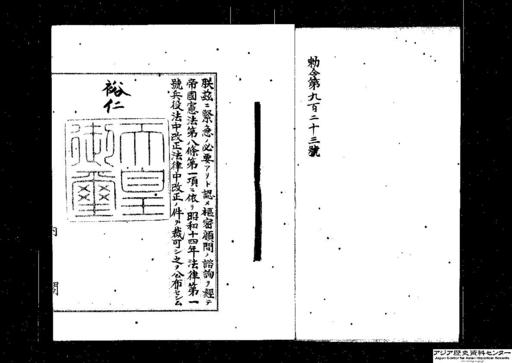 勅令第九百二十三號
朕茲ニ緊急ノ必要アリト認メ樞密顧問ノ諮詢ヲ經テ
帝國憲法第八條第一項ニ依リ昭和十四年法律第一
號兵役法中改正法律中改正ノ件ヲ裁可シ之ヲ公布セシム
裕仁
天皇御璽
アジア歴史資料センター
Japan Center for Asian Historical Records